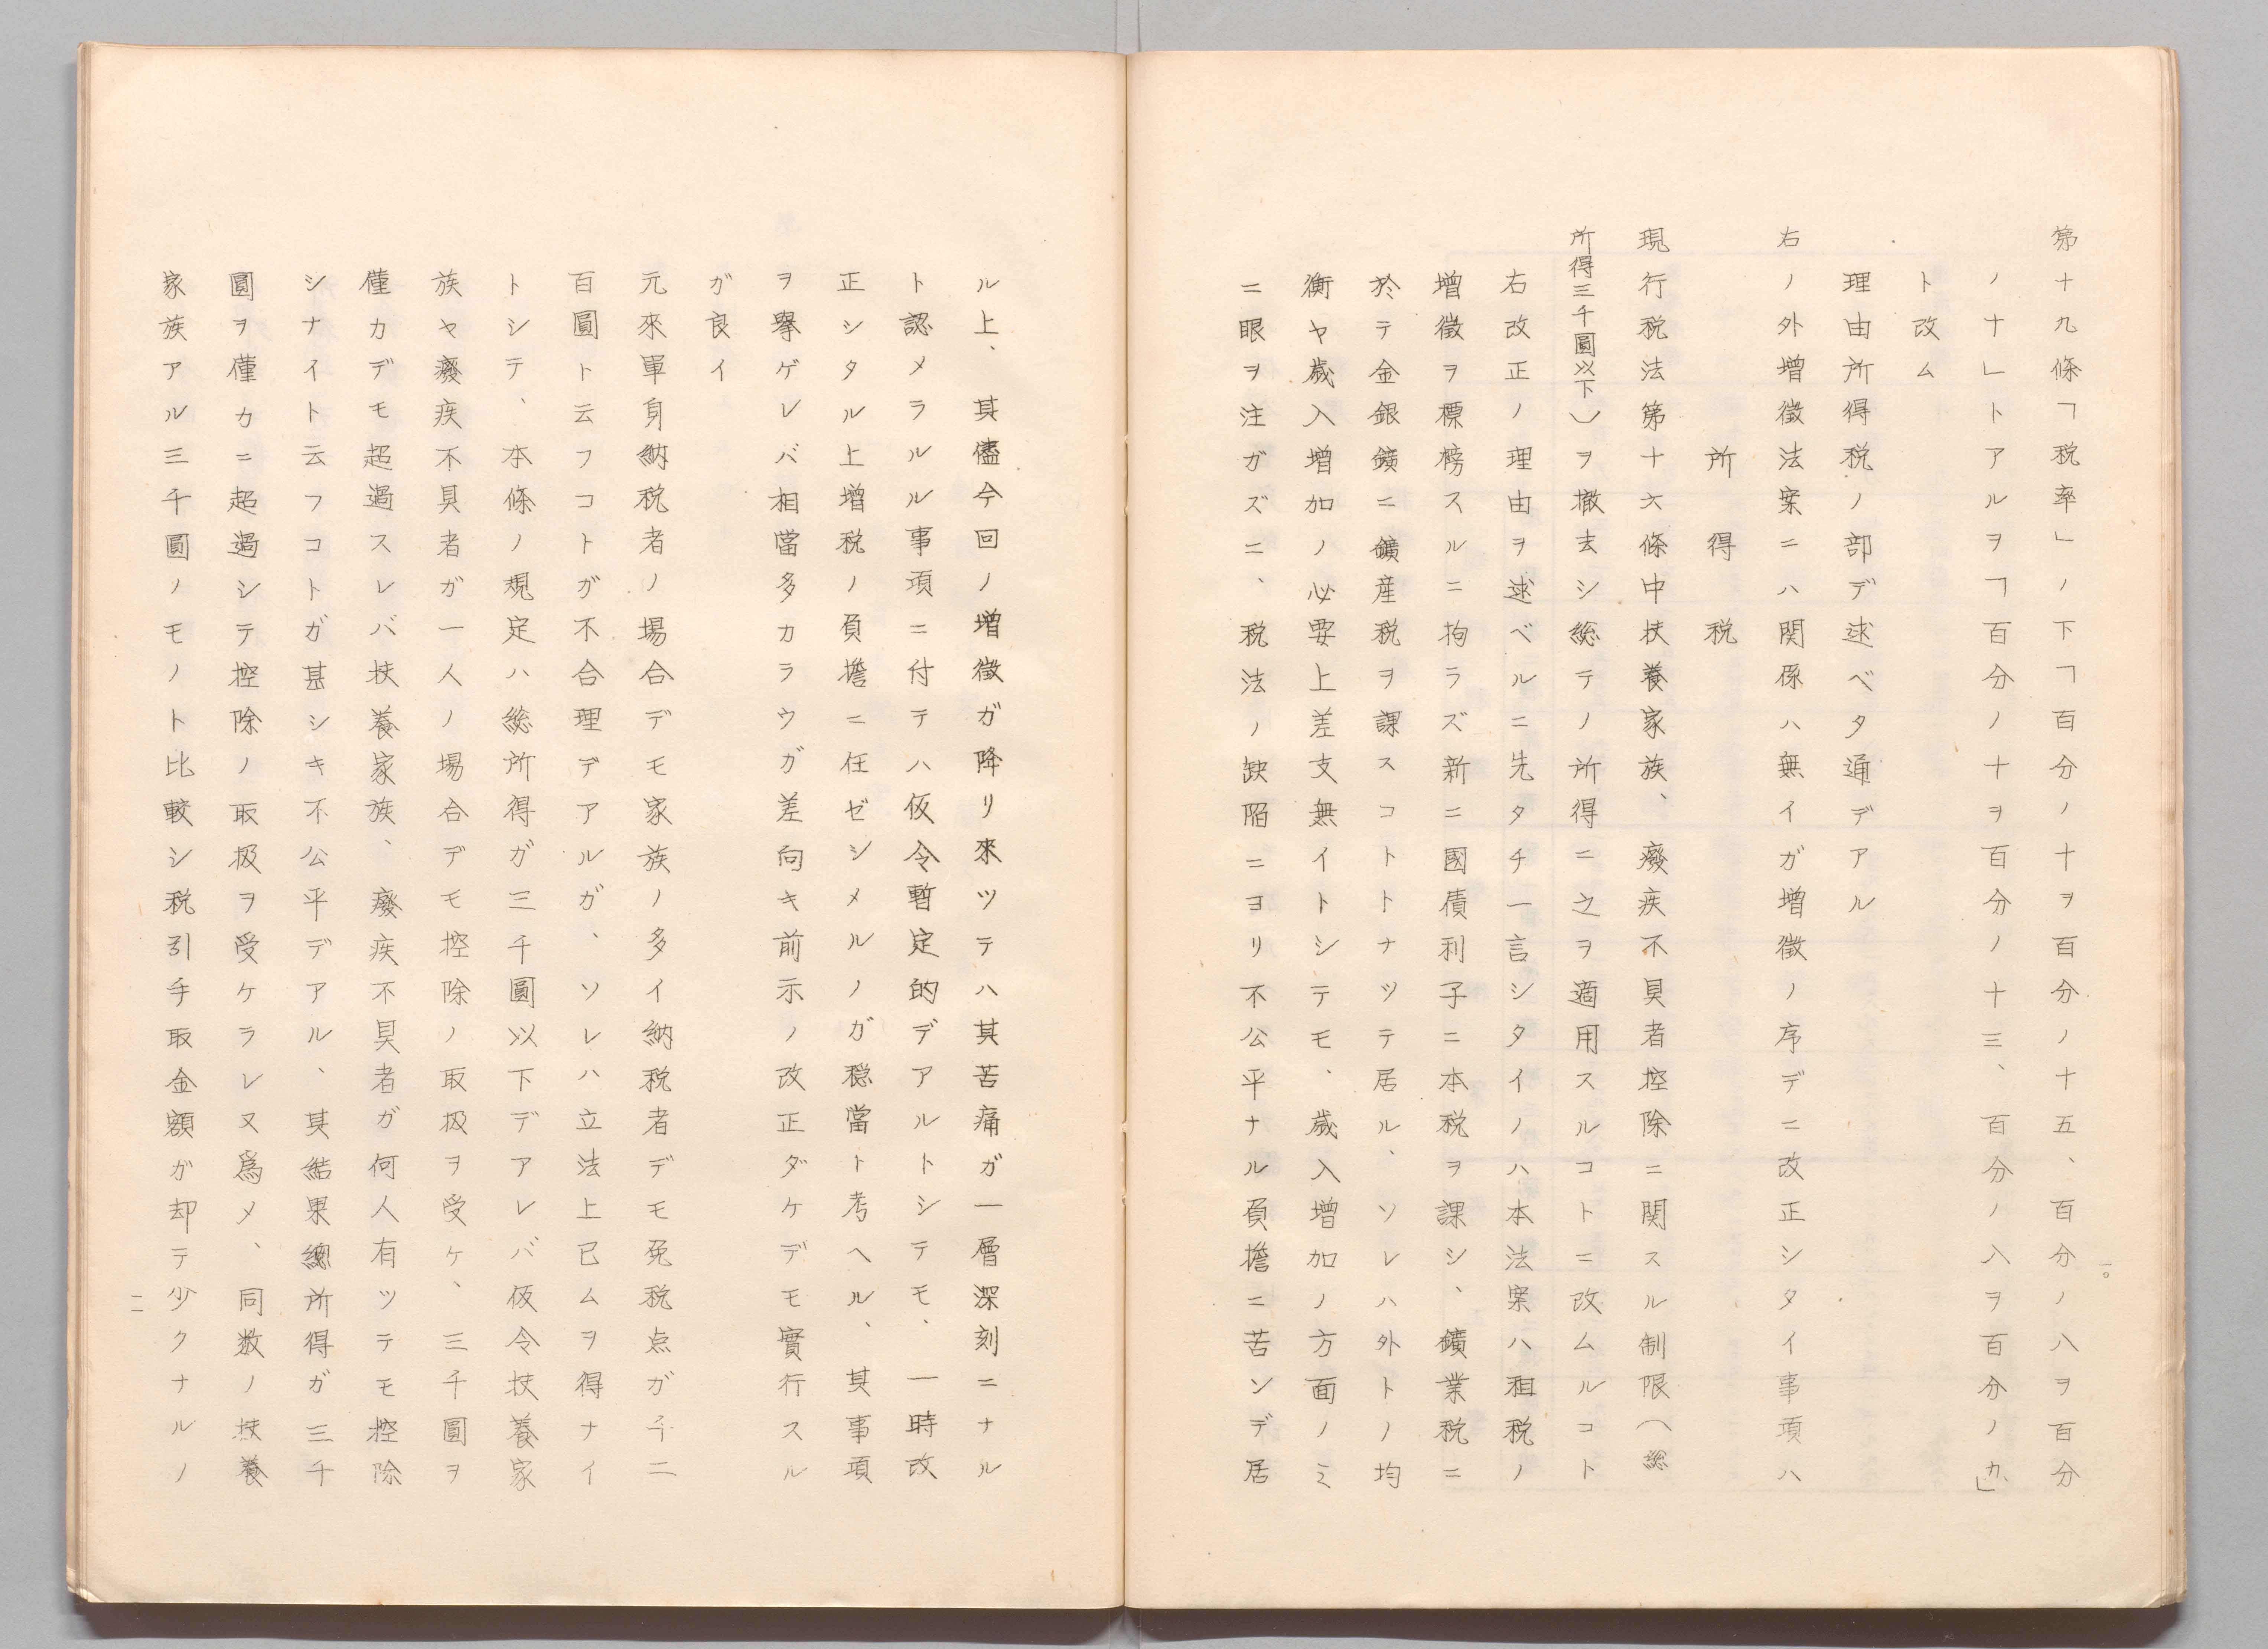 第十九條「税率」ノ下「百分ノ十ヲ百分ノ十五、百分ノ八ヲ百分
ノ十」トアルヲ「百分ノ十ヲ百分ノ十三、百分ノ八ヲ百分ノ九」
ト改ム
理由所得税ノ部デ述ベタ通デアル
右ノ外増徴法案ニハ関係ハ無イガ増徴ノ序デニ改正シタイ事項ハ
所得税
現行税法第十六條中扶養家族、癈疾不具者控除ニ関スル制限(総
所得三千圓以下)ヲ撤去シ総テノ所得ニ之ヲ適用スルコトニ改ムルコト
右改正ノ理由ヲ述ベルニ先タチ一言シタイノハ本法案ハ租税ノ
増徴ヲ標榜スルニ拘ラズ新ニ國債利子ニ本税ヲ課シ、鑛業税ニ
於テ金銀鑛ニ鑛産税ヲ課スコトトナツテ居ル、ソレハ外トノ均
衡ヤ歳入増加ノ必要上差支無イトシテモ、歳入増加ノ方面ノミ
ニ眼ヲ注ガズニ、税法ノ缺陥ニヨリ不公平ナル負擔ニ苦ンデ居
一〇
ル上、其儘今回ノ増徴ガ降リ來ツテハ其苦痛ガ一層深刻ニナル
ト認メラルル事項ニ付テハ仮令暫定的デアルトシテモ、一時改
正シタル上増税ノ負擔ニ任ゼシメルノガ穏當ト考ヘル、其事項
ヲ擧ゲレバ相當多カラウガ差向キ前示ノ改正ダケデモ實行スル
ガ良イ
元來單身納税者ノ場合デモ家族ノ多イ納税者デモ免税点ガ千二
百圓ト云フコトガ不合理デアルガ、ソレハ立法上已ムヲ得ナイ
トシテ、本條ノ規定ハ総所得ガ三千圓以下デアレバ仮令扶養家
族ヤ癈疾不具者ガ一人ノ場合デモ控除ノ取扱ヲ受ケ、三千圓ヲ
僅カデモ超過スレバ扶養家族、癈疾不具者ガ何人有ツテモ控除
シナイト云フコトガ甚シキ不公平デアル、其結果總所得ガ三千
圓ヲ僅カニ超過シテ控除ノ取扱ヲ受ケラレ又爲メ、同数ノ扶養
家族アル三千圓ノモノト比較シ税引手取金額ガ却テ少クナルノ
一一